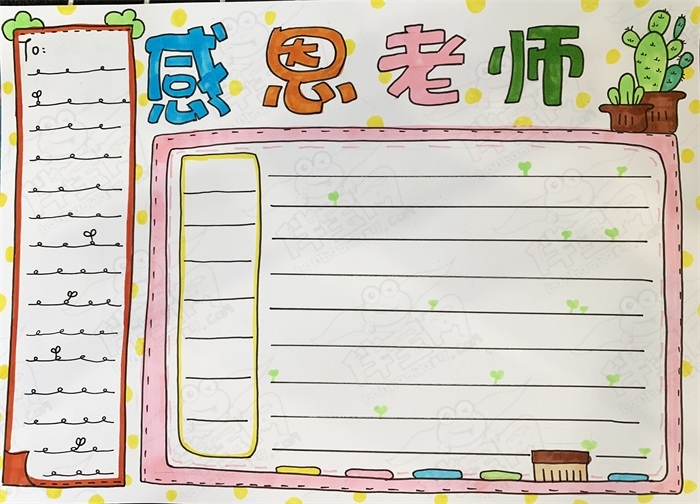 感恩老师
To: